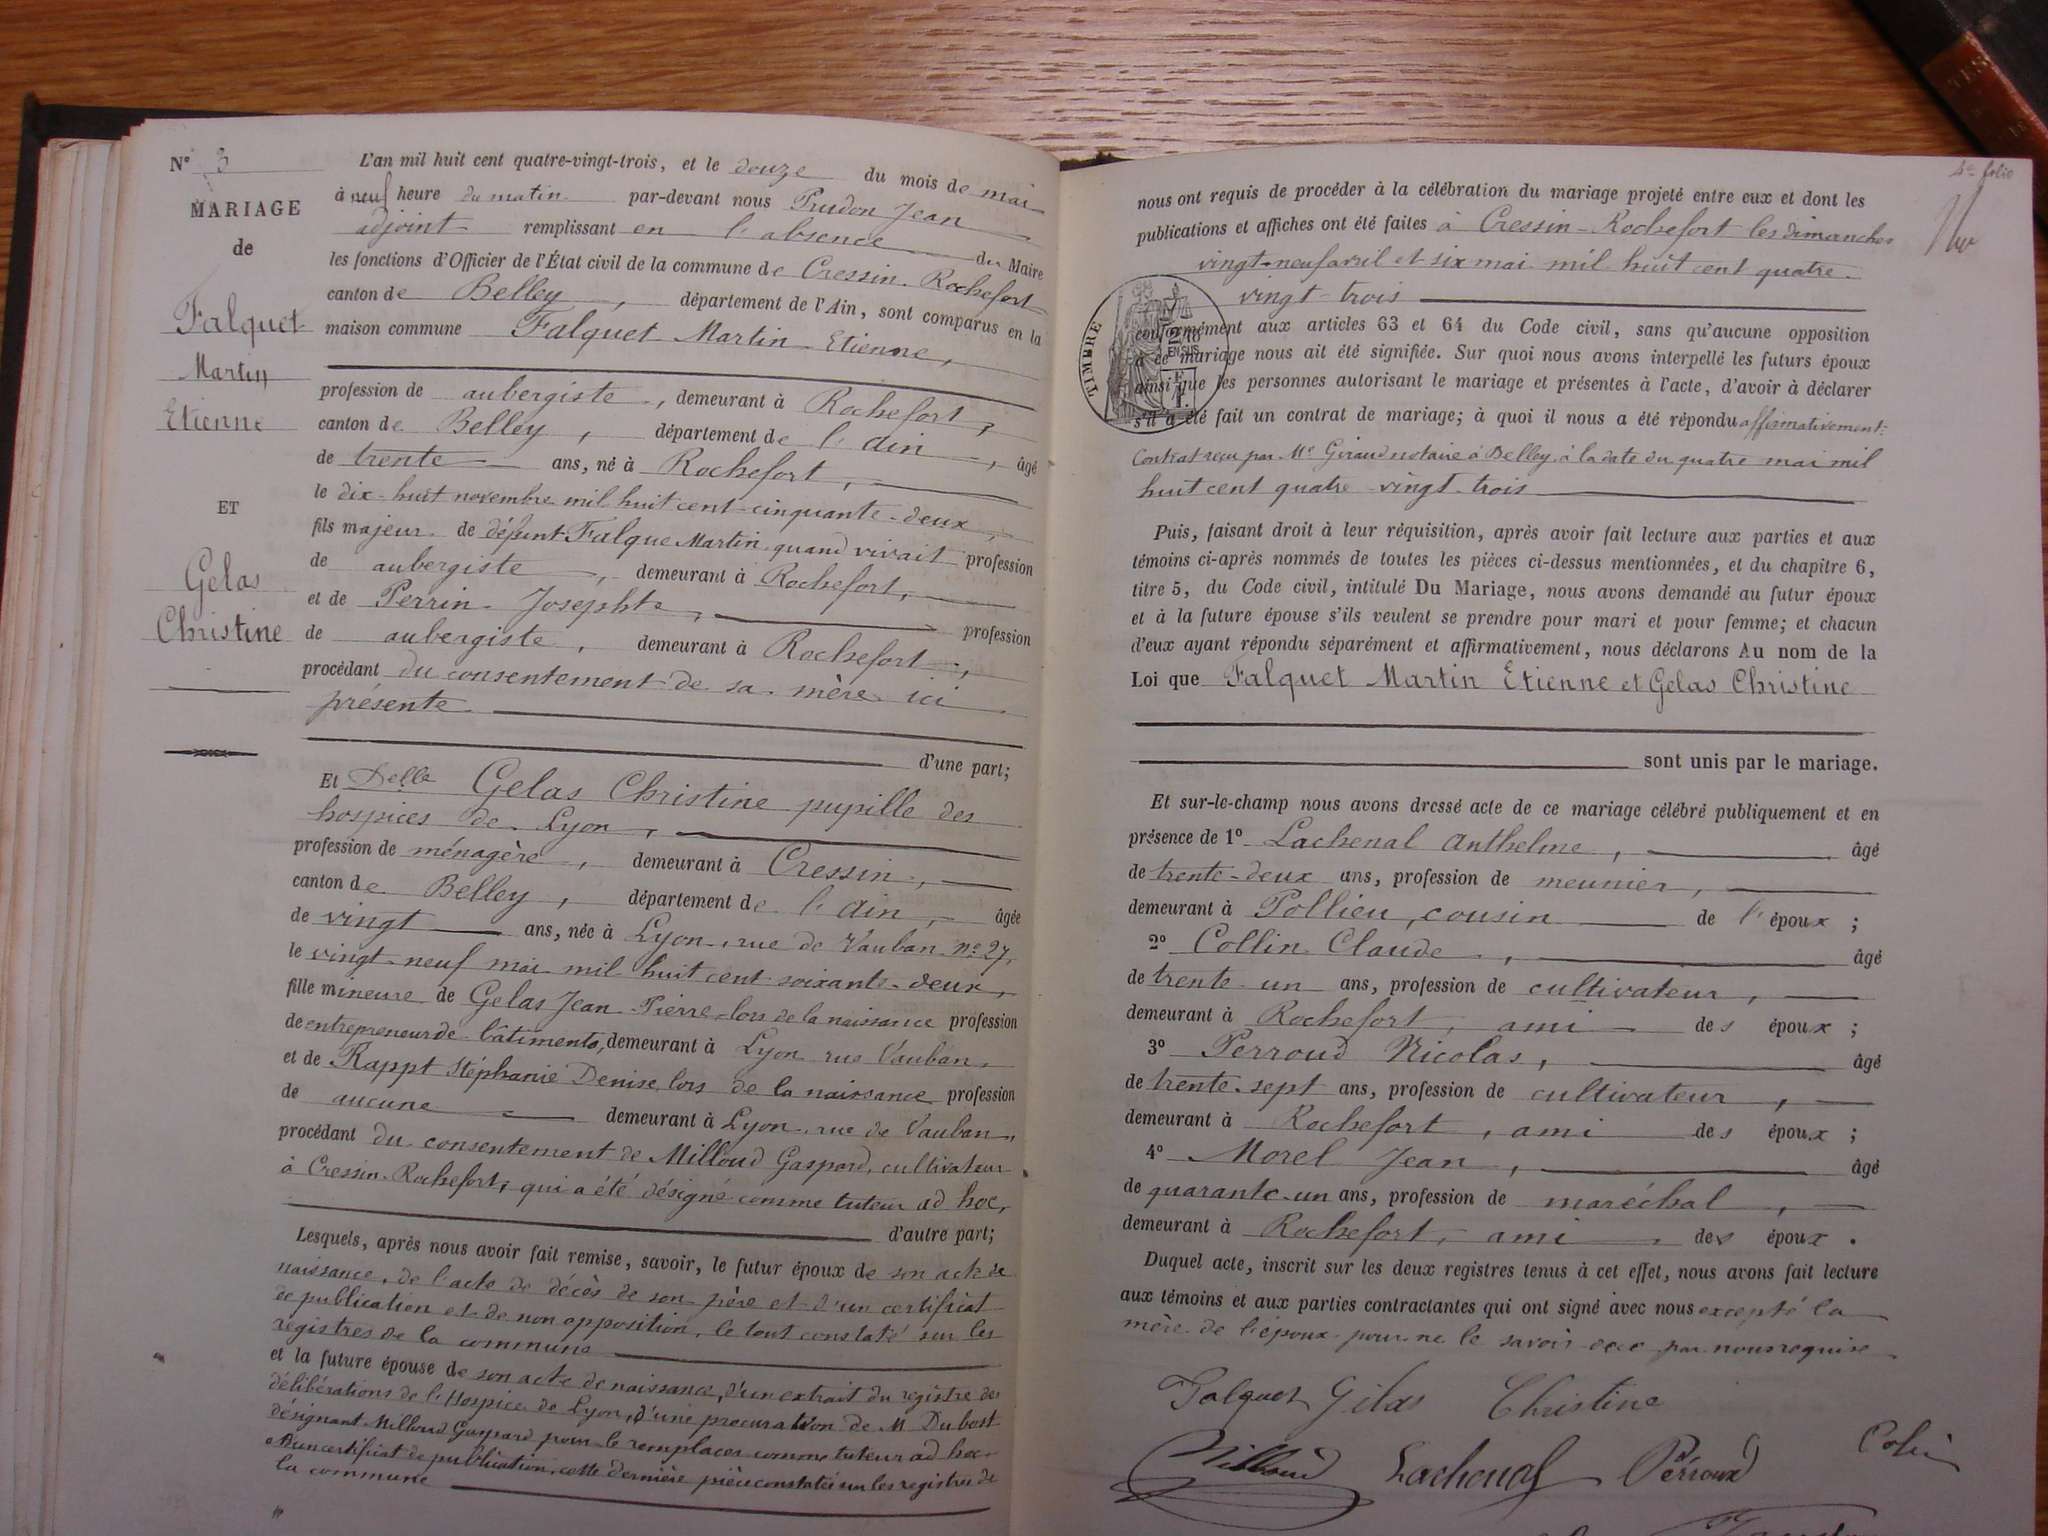 N° 3
MARIAGE
de
Falquet
Martin
Etienne
ET
Gelas
Christine
L'an mil huit cent quatre-vingt-trois, et le douze du mois de mai
à neuf heure du matin par-devant nous Prudon Jean
adjoint remplissant en l'absence du Maire
les fonctions d'Officier de l'État civil de la commune de Cressin-Rochefort
canton de Belley, département de l'Ain, sont comparus en la
maison commune Falquet Martin Etienne,
profession de aubergiste, demeurant à Rochefort,
canton de Belley, département de l'Ain, âgé
de trente ans, né à Rochefort,
le dix-huit novembre mil huit cent cinquante-deux,
fils majeur de défunt Falque Martin quand vivait profession
de aubergiste, demeurant à Rochefort,
et de Perrin Josephte, profession
de aubergiste, demeurant à Rochefort,
procédant du consentement de sa mère ici
présente
d'une part;
Et Delle Gelas Christine pupille des
hospices de Lyon,
profession de ménagère, demeurant à Cressin,
canton de Belley, département de l'Ain, âgée
de vingt ans, née à Lyon, rue de Vauban n° 27,
le vingt-neuf mai mil huit cent soixante-deux,
fille mineure de Gelas Jean Pierre lors de la naissance profession
de entrepreneur de bâtiments, demeurant à Lyon rue Vauban,
et de Rappt Stéphanie Denise lors de la naissance profession
de aucune demeurant à Lyon, rue de Vauban,
procédant du consentement de Milloud Gaspard, cultivateur
à Cressin-Rochefort, qui a été désigné comme tuteur ad hoc,
d'autre part;
Lesquels, après nous avoir fait remise, savoir, le futur époux de son acte de
naissance, de l'acte de décès de son père et d'un certificat
de publication et de non opposition, le tout constaté sur les
registres de la commune
et la future épouse de son acte de naissance, d'un extrait du registre des
délibérations de l'Hospice de Lyon, d'une procuration de M Dubost
désignant Milloud Gaspard pour le remplacer comme tuteur ad hoc
et d'un certificat de publication, cette dernière pièce constatée sur les registres de
la commune
4e folio
nous ont requis de procéder à la célébration du mariage projeté entre eux et dont les
publications et affiches ont été faites à Cressin-Rochefort les dimanches
vingt-neuf avril et six mai mil huit cent quatre-
vingt-trois
TIMBRE
EN SUS
conformément aux articles 63 et 64 du Code civil, sans qu'aucune opposition
à ce mariage nous ait été signifiée. Sur quoi nous avons interpellé les futurs époux
ainsi que les personnes autorisant le mariage et présentes à l'acte, d'avoir à déclarer
s'il a été fait un contrat de mariage; à quoi il nous a été répondu affirmativement:
Contrat reçu par Me Giraud notaire à Belley à la date du quatre mai mil
huit cent quatre-vingt-trois
Puis, faisant droit à leur réquisition, après avoir fait lecture aux parties et aux
témoins ci-après nommés de toutes les pièces ci-dessus mentionnées, et du chapitre 6,
titre 5, du Code civil, intitulé Du Mariage, nous avons demandé au futur époux
et à la future épouse s'ils veulent se prendre pour mari et pour femme; et chacun
d'eux ayant répondu séparément et affirmativement, nous déclarons Au nom de la
Loi que Falquet Martin Etienne et Gelas Christine
sont unis par le mariage.
Et sur-le-champ nous avons dressé acte de ce mariage célébré publiquement et en
présence de 1° Lachenal Anthelme, âgé
de trente-deux ans, profession de meunier,
demeurant à Pollieu, cousin de l'époux;
2° Collin Claude, âgé
de trente-un ans, profession de cultivateur,
demeurant à Rochefort, ami des époux;
3° Perroud Nicolas, âgé
de trente-sept ans, profession de cultivateur,
demeurant à Rochefort, ami des époux;
4° Morel Jean, âgé
de quarante-un ans, profession de maréchal,
demeurant à Rochefort, ami des époux.
Duquel acte, inscrit sur les deux registres tenus à cet effet, nous avons fait lecture
aux témoins et aux parties contractantes qui ont signé avec nous excepté la
mère de l'époux pour ne le savoir de ce par nous requise
Falquet Gelas Christine
Milloud Lachenal Perroud Colin